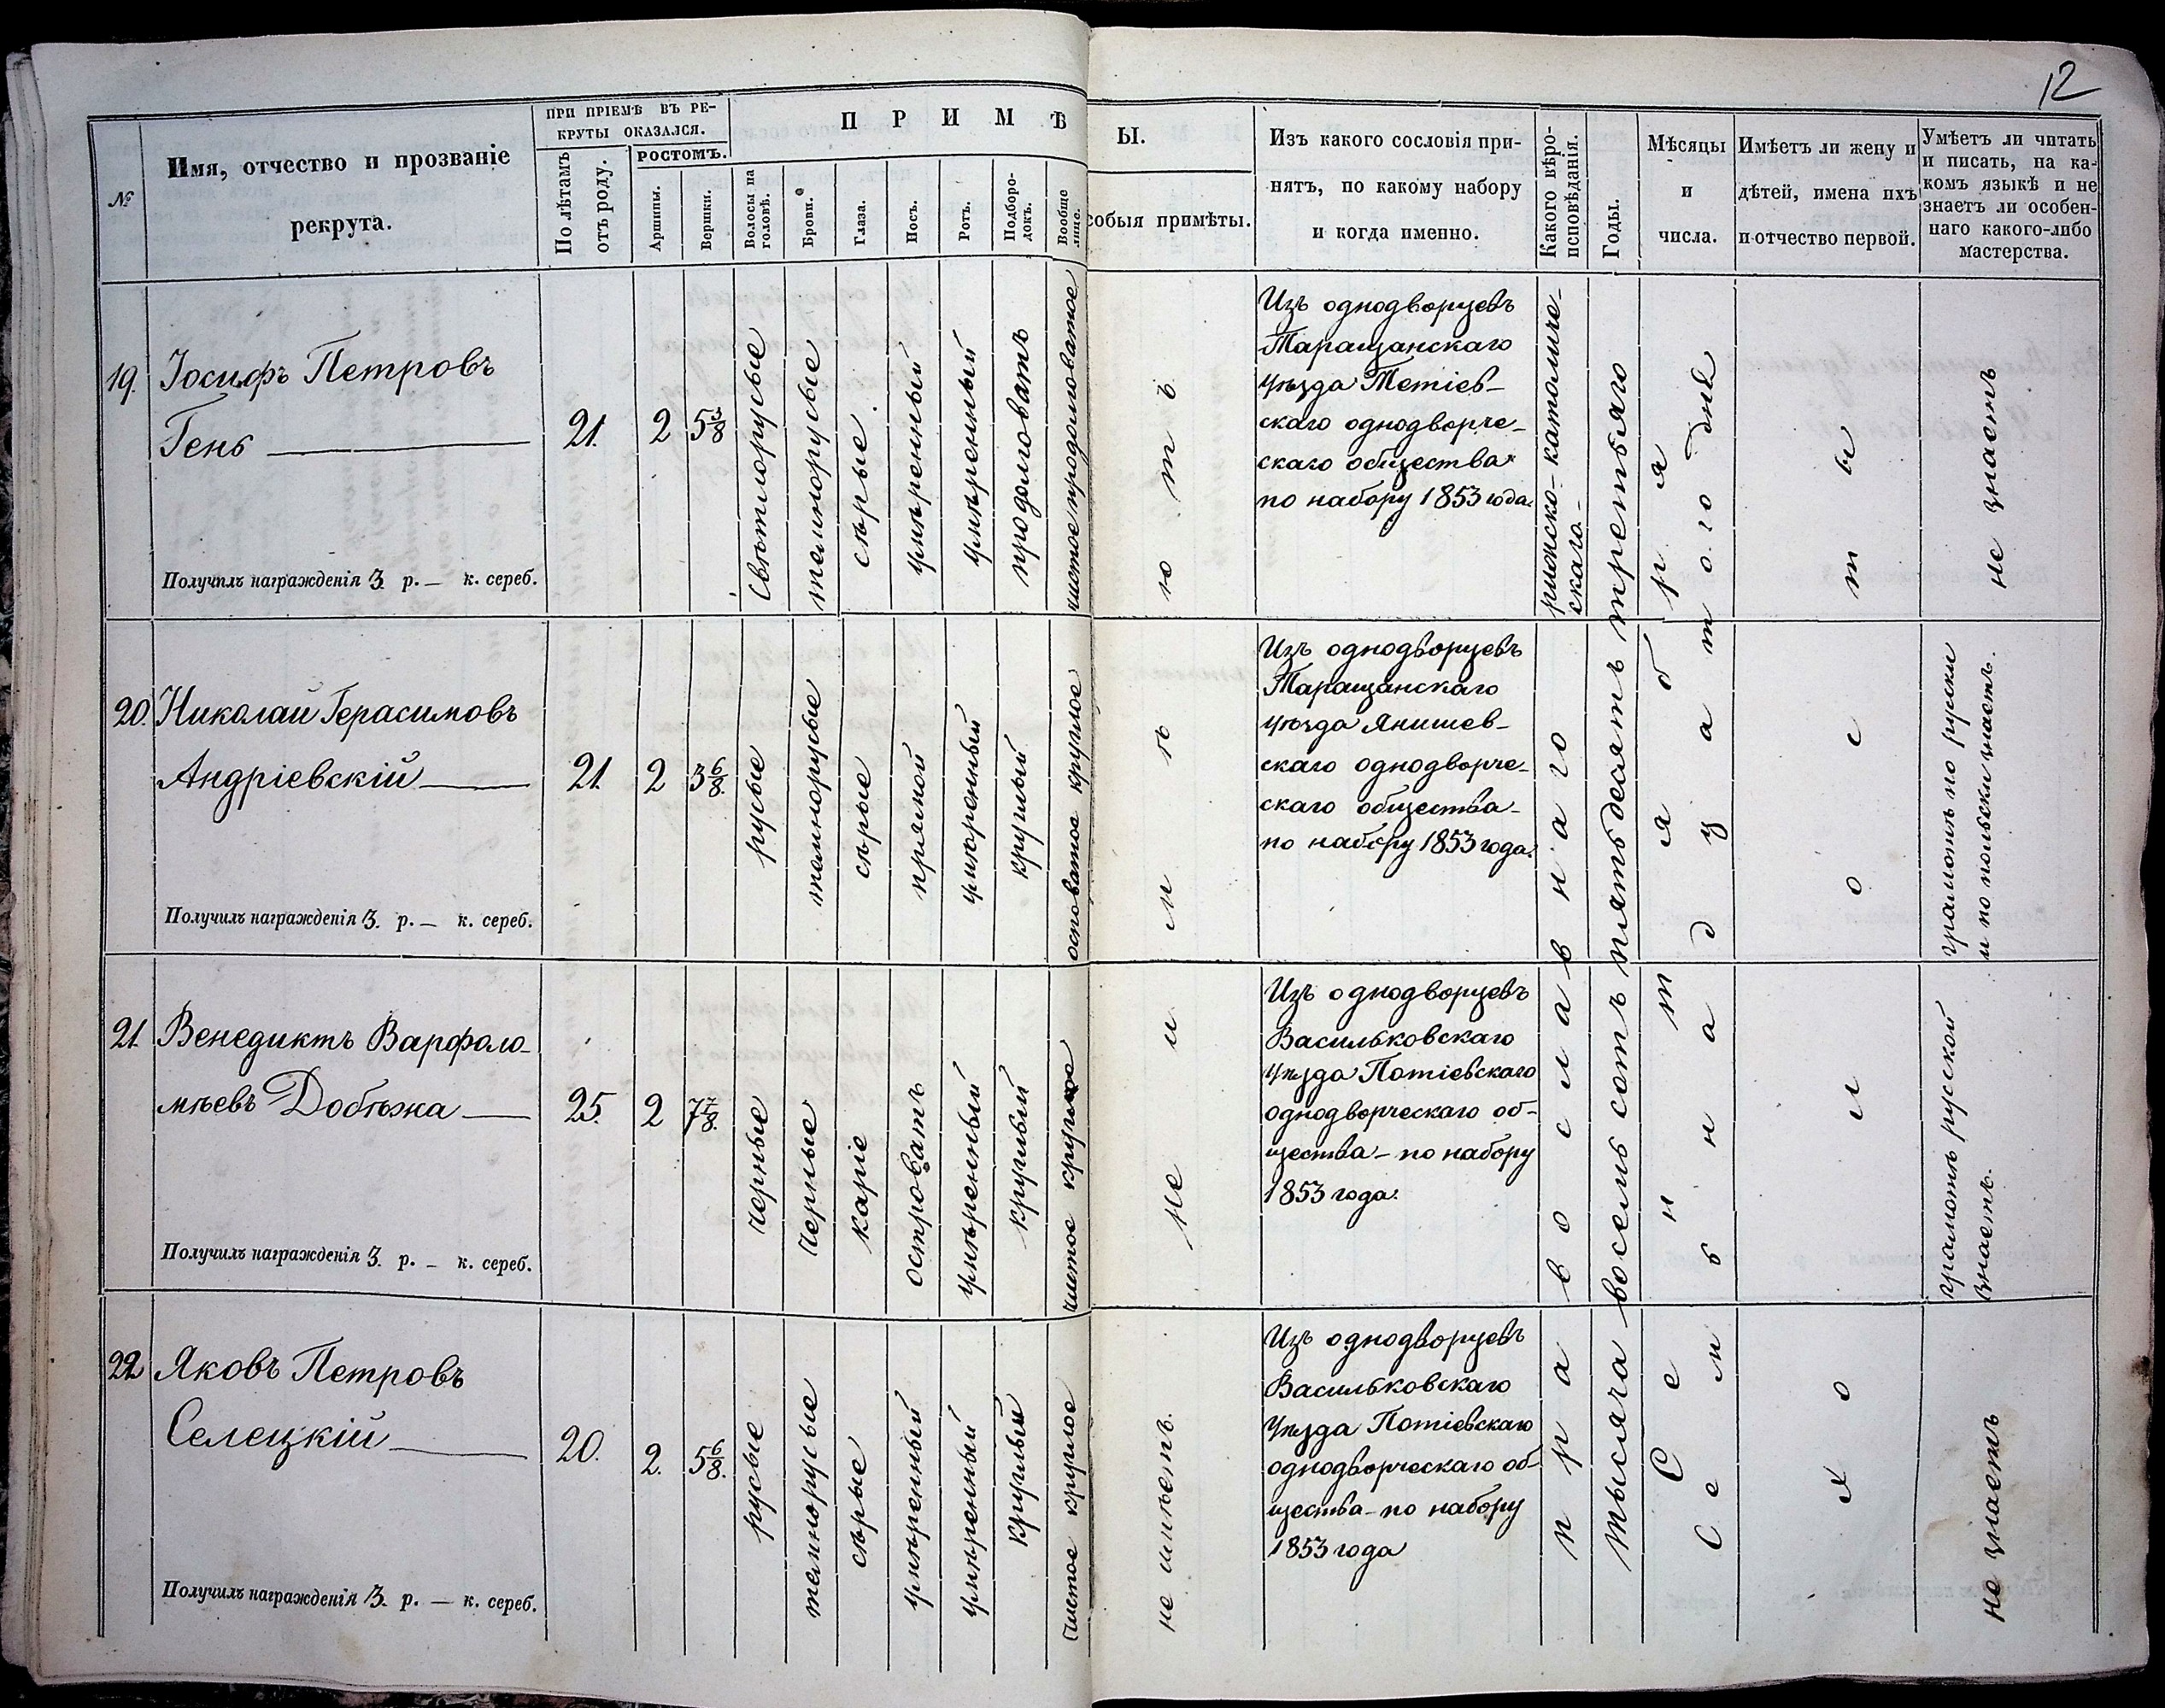 12
№
Имя, отчество и прозваніе
рекрута.
ПРИ ПРІЕМѢ ВЪ РЕ-
КРУТЫ ОКАЗАЛСЯ.
По лѣтамъ
отъ роду.
РОСТОМЪ.
Аршины.
Вершки.
ПРИМѢ
Ы.
Волосы на
головѣ.
Брови.
Глаза.
Носъ.
Ротъ.
Подборо-
докъ.
Вообще
лице.
собыя примѣты.
Изъ какого сословія при-
нятъ, по какому набору
и когда именно.
Какого вѣро-
исповѣданія.
Годы.
Мѣсяцы
и
числа.
Имѣетъ ли жену и
дѣтей, имена ихъ
и отчество первой.
Умѣетъ ли читать
и писать, на ка-
комъ языкѣ и не
знаетъ ли особен-
наго какого-либо
мастерства.
19.
Іосифъ Петровъ
Гень
Получилъ награжденія 3 р. — к. сереб.
21.
2
5 3/8
Свѣтлорусые
темнорусые
сѣрые
умѣренный
умѣренный
продолговатъ
чистое продолговатое
Изъ однодворцевъ
Таращанскаго
уѣзда Тетіев-
скаго однодворче-
скаго общества
по набору 1853 года.
римско-католиче-
скаго.
не знаетъ
20.
Николай Герасимовъ
Андріевскій
Получилъ награжденія 3. р. — к. сереб.
21.
2
3 6/8.
русые
темнорусые
сѣрые
прямой
умѣренный
круглый
осповатое круглое
Изъ однодворцевъ
Таращанскаго
уѣзда Янишев-
скаго однодворче-
скаго общества
по набору 1853 года.
грамотѣ по русски
и по польски знаетъ.
21.
Венедиктъ Варфоло-
мѣевъ Добѣжа
Получилъ награжденія 3. р. — к. сереб.
25.
2
7 7/8.
черные
черные
каріе
островатъ
умѣренный
круглый
чистое круглое
не имѣютъ
Изъ однодворцевъ
Васильковскаго
уѣзда Потіевскаго
однодворческаго об-
щества — по набору
1853 года.
грамотѣ русской
знаетъ.
22
Яковъ Петровъ
Селецкій
Получилъ награжденія 3. р. — к. сереб.
20.
2.
5 6/8.
русые
темнорусые
сѣрые
умѣренный
умѣренный
круглый
чистое круглое
не имѣетъ.
Изъ однодворцевъ
Васильковскаго
Уѣзда Потіевскаго
однодворческаго об-
щества — по набору
1853 года
православнаго
тысяча восемьсотъ пятьдесятъ третьяго
Сентября
Семьнадцатого дня
Холосты
не знаетъ